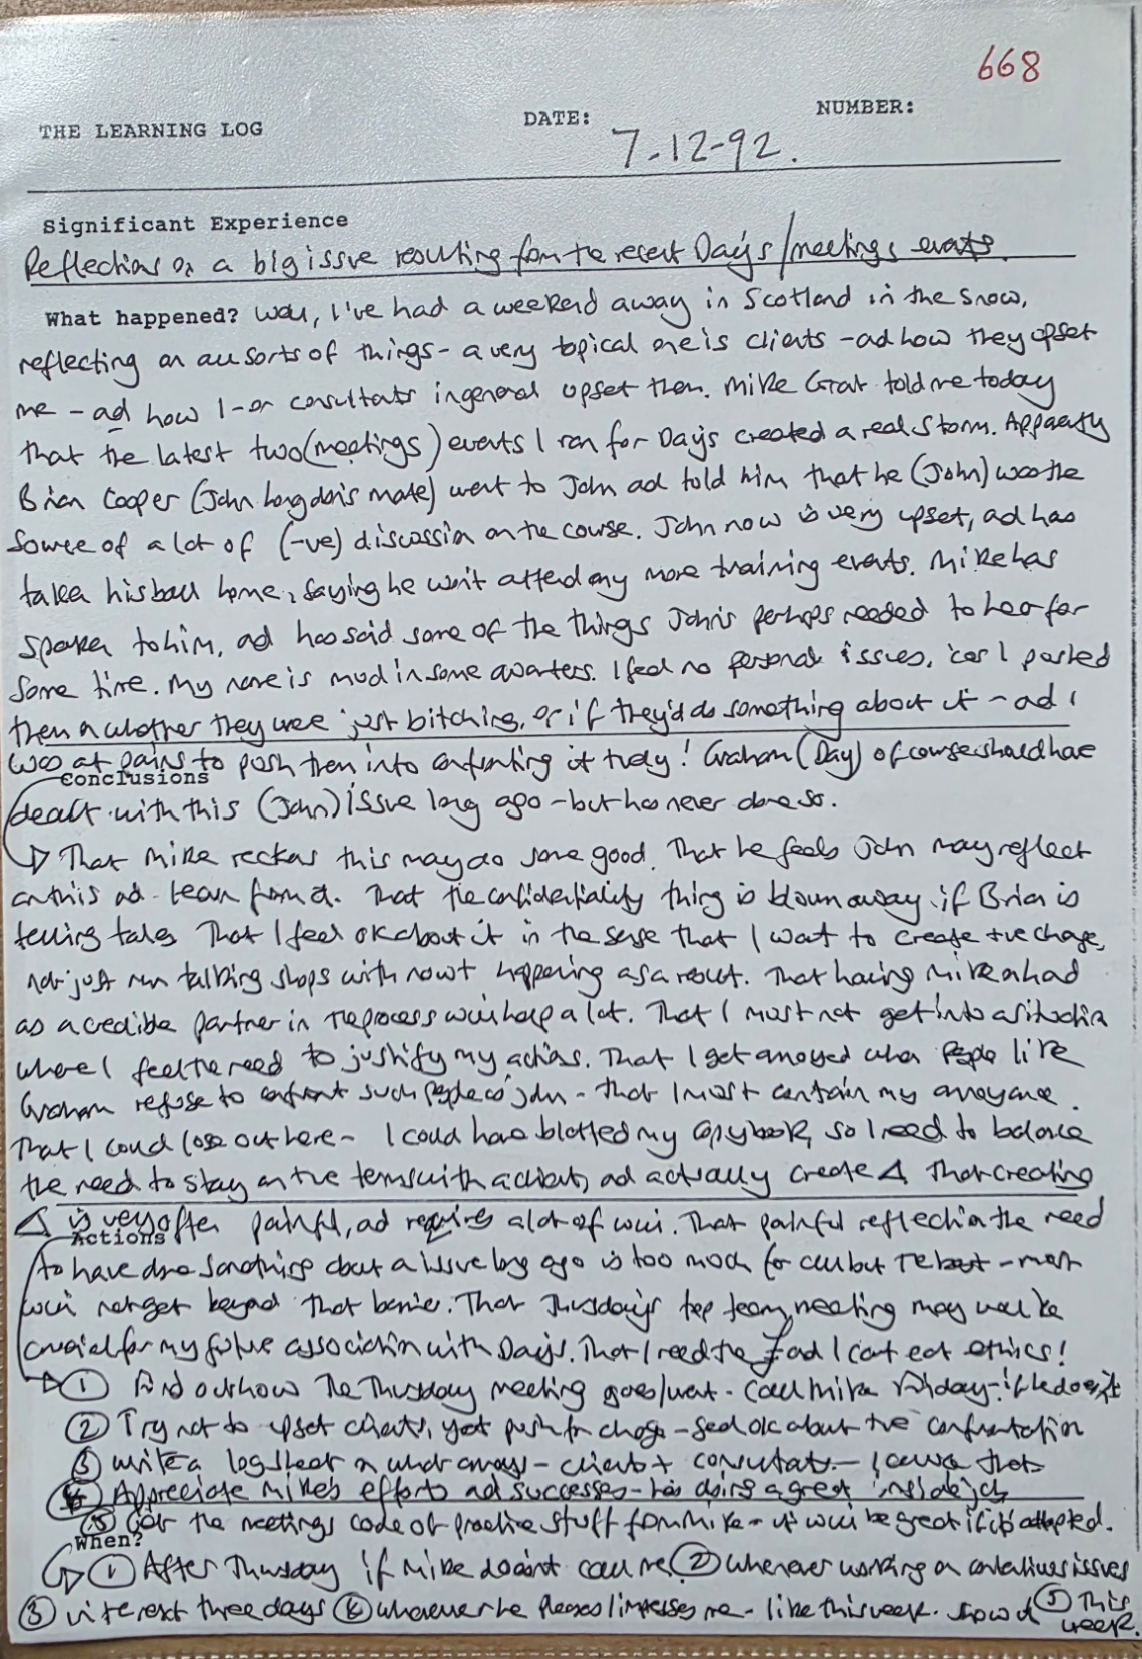 668
THE LEARNING LOG DATE: NUMBER:
7-12-92.
Significant Experience
Reflections on a big issue resulting from the recent Day's/meetings events.
What happened? Well, I've had a weekend away in Scotland in the snow,
reflecting on all sorts of things - a very topical one is clients - and how they upset
me - and how I - or consultants in general upset them. Mike Grat told me today
that the latest two (meetings) events I ran for Days created a real storm. Apparently
Brian Cooper (John Longdon's mate) went to John and told him that he (John) was the
source of a lot of (-ve) discussion on the course. John now is very upset, and has
taken his ball home, saying he won't attend any more training events. Mike has
spoken to him, and has said some of the things John's perhaps needed to hear for
some time. My name is mud in some quarters. I feel no personal issues, 'cos I pushed
them on whether they were just bitching, or if they'd do something about it - and I
was at pains to push them into confronting it truly! Graham (Day) of course should have
Conclusions
dealt with this (John) issue long ago - but has never done so.
That Mike reckons this may do some good. That he feels John may reflect
on this and learn from it. That the confidentiality thing is blown away if Brian is
telling tales That I feel ok about it in the sense that I want to create +ve change,
not just run talking shops with nowt happening as a result. That having Mike on hand
as a credible partner in the process will help a lot. That I must not get into a situation
where I feel the need to justify my actions. That I get annoyed when people like
Graham refuse to confront such people as John - that I must contain my annoyance.
That I could lose out here - I could have blotted my copybook, so I need to balance
the need to stay on +ve terms with a client, and actually create Δ That creating
Δ is very often painful, and requires a lot of will. That painful reflection the need
Actions
to have done something about a issue long ago is too much for all but the best - most
will not get beyond that barrier. That Thursday's top team meeting may well be
crucial for my future association with Days. That I need the £ and I can't eat ethics!
① Find out how the Thursday meeting goes/went - call Mike Friday - if he doesn't
② Try not to upset clients, yet push for change - feel ok about the confrontation
③ write a log sheet on what annoys - clients + consultants -
④ Appreciate Mike's efforts and successes - he's doing a great 'inside' job
⑤ Get the meetings code of practice stuff from Mike - it will be great if it's adopted.
When?
① After Thursday if Mike doesn't call me ② whenever working on contentious issues
③ in the next three days ④ whenever he pleases/impresses me - like this week. ⑤ This
week.